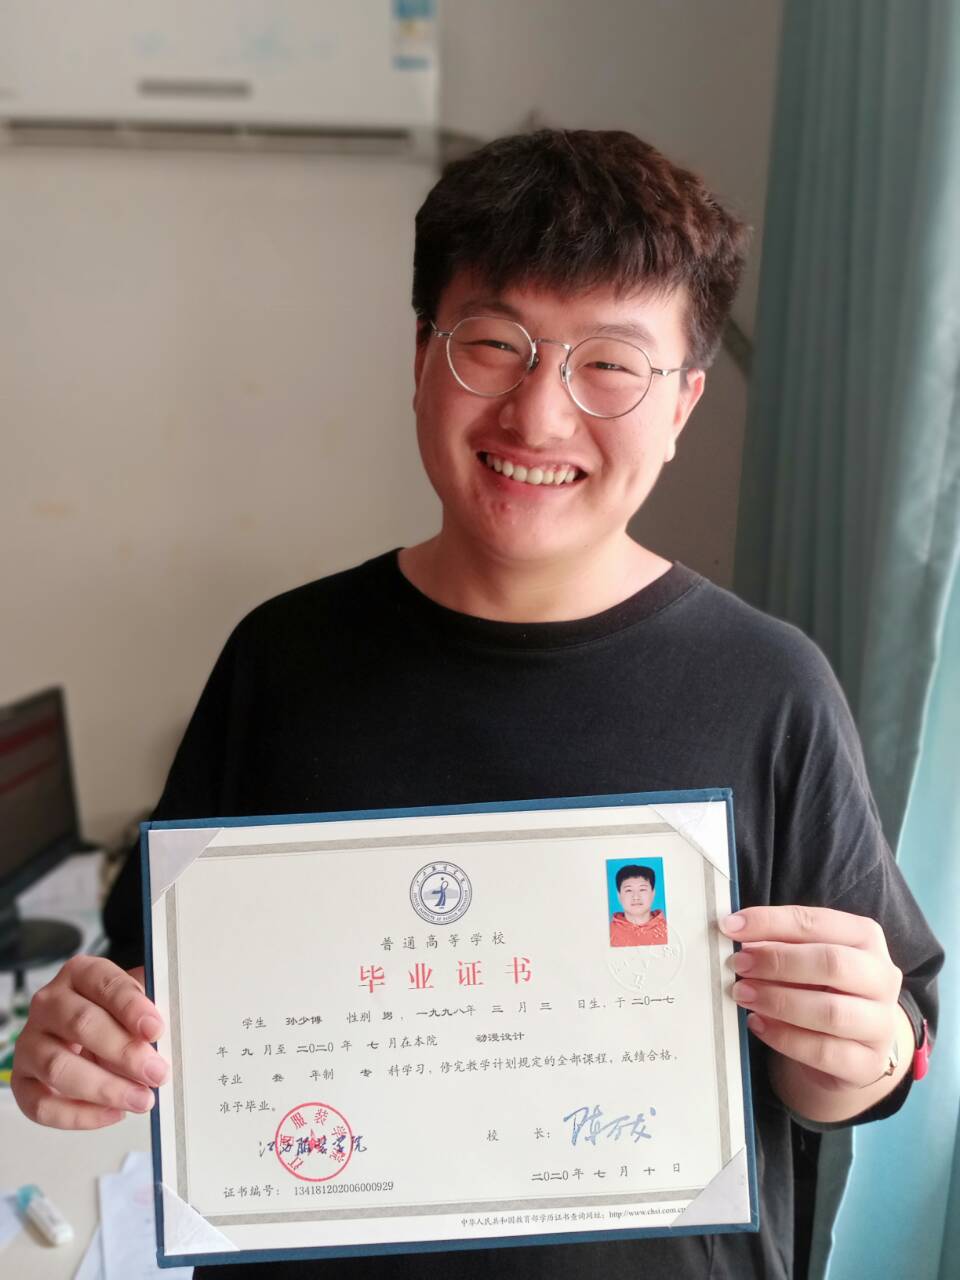 普通高等学校
毕业证书
学生 孙少博 性别 男，一九九八年 三 月 三 日生，于二〇一七
年 九 月至 二〇二〇 年 七 月在本院 动漫设计
专业 叁 年制 专 科学习，修完教学计划规定的全部课程，成绩合格，
准予毕业。
江西服装学院
江西服装学院
校 长：陈万发
证书编号：134181202006000929
二〇二〇 年 七 月 十 日
中华人民共和国教育部学历证书查询网址：http://www.chsi.com.cn